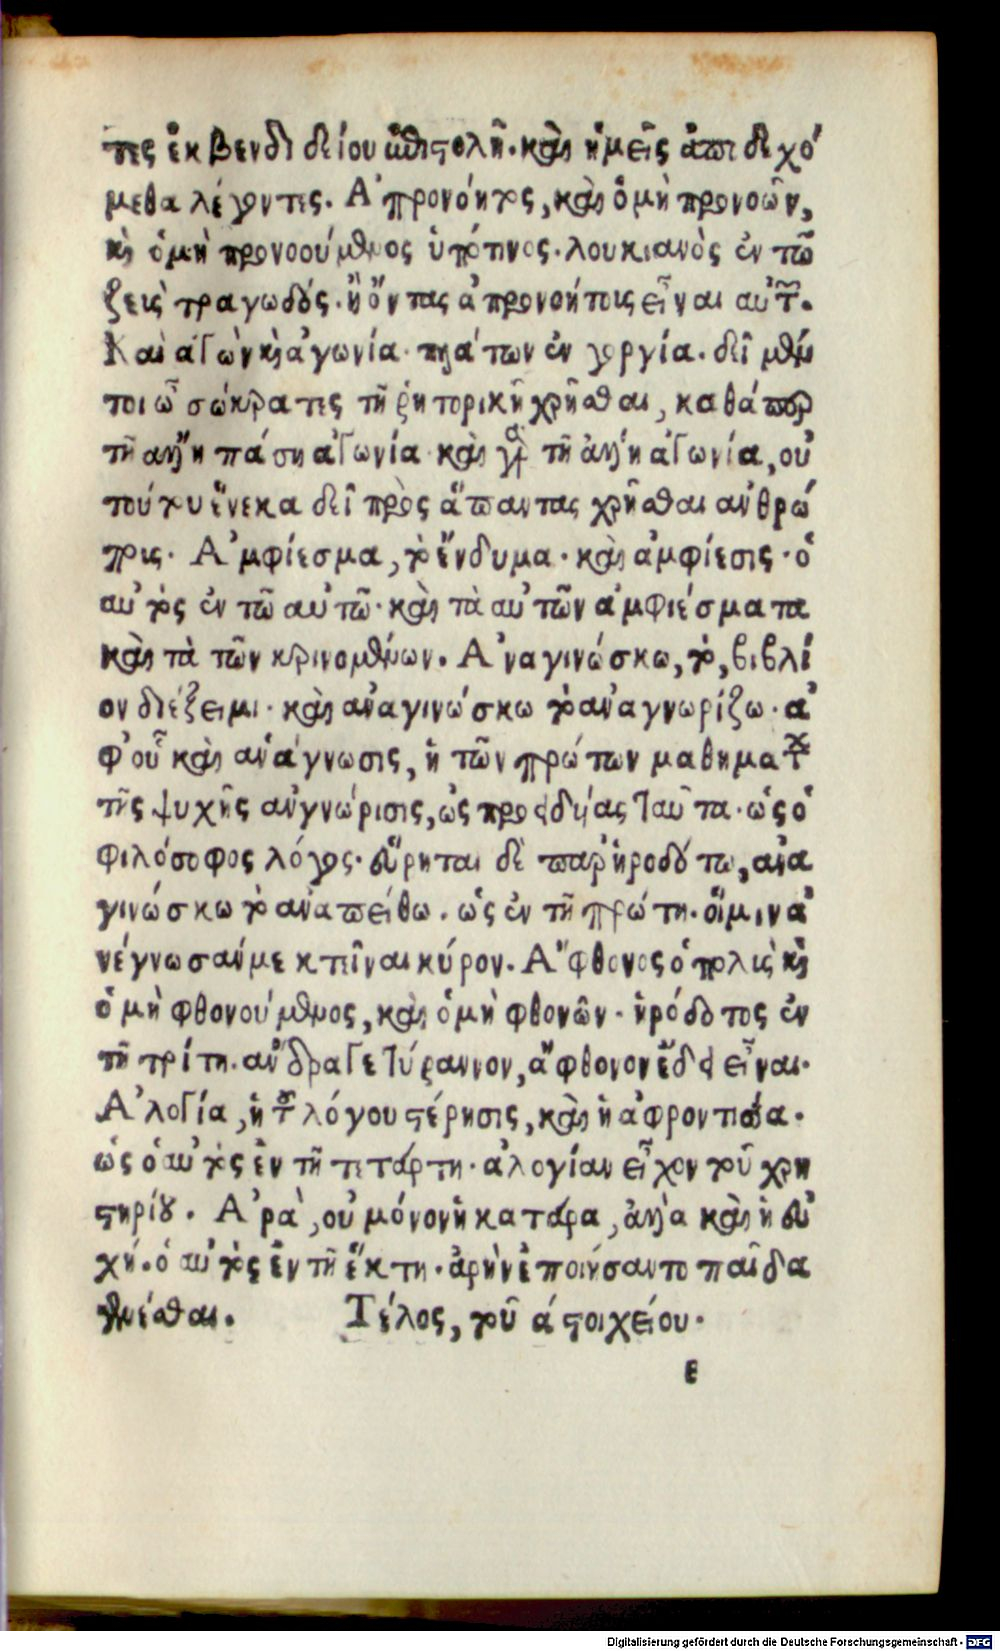 της ἐκ βενδιδείου ἐπιστολῆ. καὶ ἡμεῖς ἀποδεχό
μεθα λέγοντες. Ἀπρονόητος, καὶ ὁ μὴ προνοῶν,
κὶ ὁ μὴ προνοούμενος ὑπότινος. λουκιανὸς ἐν τῶ
ζεὺς τραγωδός. ἢ ὄντας ἀπρονοήτους εἶναι αὐτῶν.
Καὶ ἀγὼν κὶ ἀγωνία. πλάτων ἐν γοργία. δεῖ μὲν
τοι ὦ σώκρατες τῆ ῥητορικῆ χρῆσθαι, καθάπερ
τῆ ἄλλη πάση ἀγωνία καὶ γὰρ τῆ ἄλλη ἀγωνία, οὐ
τούτου ἕνεκα δεῖ πρὸς ἅπαντας χρῆσθαι ἀνθρώ
ποις. Ἀμφίεσμα, τὸ ἔνδυμα. καὶ ἀμφίεσις. ὁ
αὐτὸς ἐν τῶ αὐτῶ. καὶ τὰ αὐτῶν ἀμφιέσματα
καὶ τὰ τῶν κρινομένων. Ἀναγινώσκω, τὸ, βιβλί
ον διέξειμι. καὶ ἀναγινώσκω τὸ ἀναγνωρίζω. ἀ
φ' οὗ καὶ ἀνάγνωσις, ἡ τῶν πρώτων μαθημάτων
τῆς ψυχῆς ἀνγνώρισις, ὡς προειδυίας ταῦτα. ὡς ὁ
φιλόσοφος λόγος. εὕρηται δὲ παρ' ἡροδότω, ἀνα
γινώσκω τὸ ἀναπείθω. ὡς ἐν τῆ πρώτη. οἵ μιν ἀ
νέγνωσαν μετιέναι κύρον. Ἄφθονος ὁ πολὺς κὶ
ὁ μὴ φθονούμενος, καὶ ὁ μὴ φθονῶν. ἡρόδοτος ἐν
τῆ τρίτη. ἄνδρα γε τύραννον, ἄφθονον ἔδει εἶναι.
Ἀλογία, ἡ τοῦ λόγου στέρησις, καὶ ἡ ἀφροντισία.
ὡς ὁ αὐτὸς ἐν τῆ τετάρτη. ἀλογίαν εἶχον τοῦ χρη
στηρίου. Ἀρὰ, οὐ μόνον ἡ κατάρα, ἀλλὰ καὶ ἡ εὐ
χή. ὁ αὐτὸς ἐν τῆ ἕκτη. ἀρὴν ἐποιήσαντο παῖδα
γενέσθαι. Τέλος, τοῦ ά στοιχείου.
ε
Digitalisierung gefördert durch die Deutsche Forschungsgemeinschaft - DFG